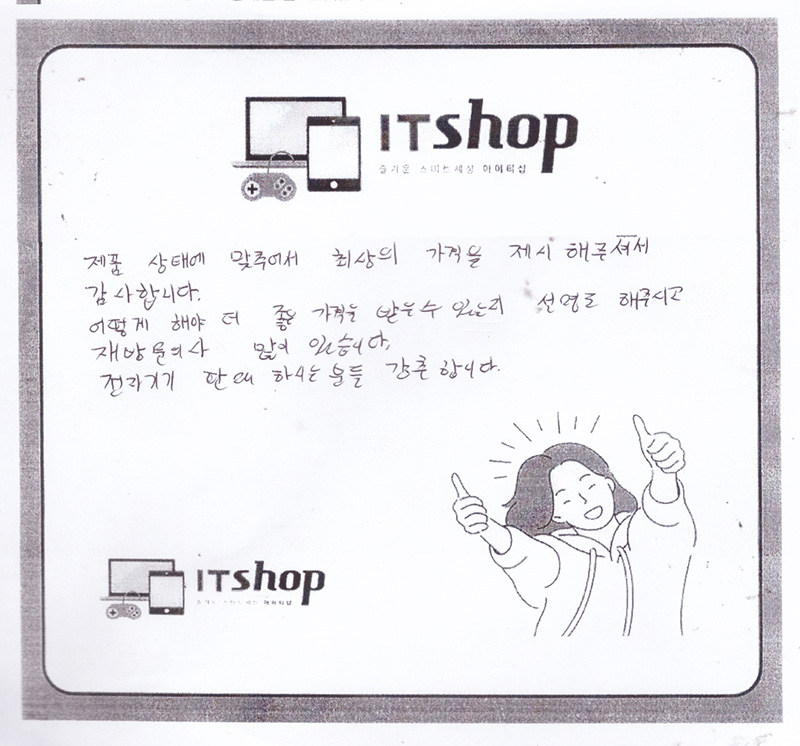 ITshop
즐거운 스마트세상 아이티샵
제품 상태에 맞추어서 최상의 가격을 제시해주셔서
감사합니다.
어떻게 해야 더 좋은 가격을 받을수 있는지 설명도 해주시고
재방문의사 많이 있습니다.
전자기기 판매 하시는분들 강추합니다.
ITshop
즐거운 스마트세상 아이티샵